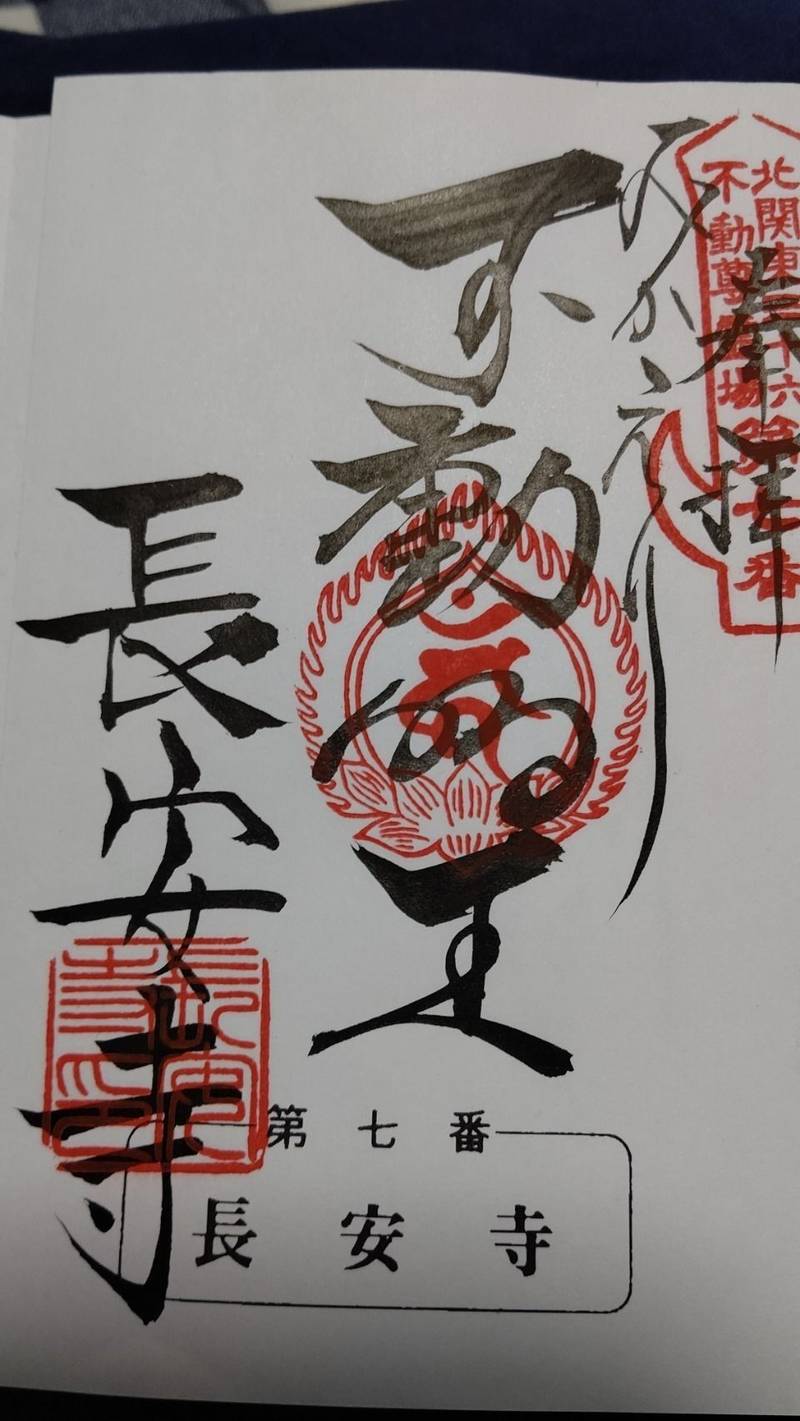 北関東三十六
不動尊霊場
第七番
奉拝
みかえり
不動明王
長安寺
長安
寺印
第七番
長安寺